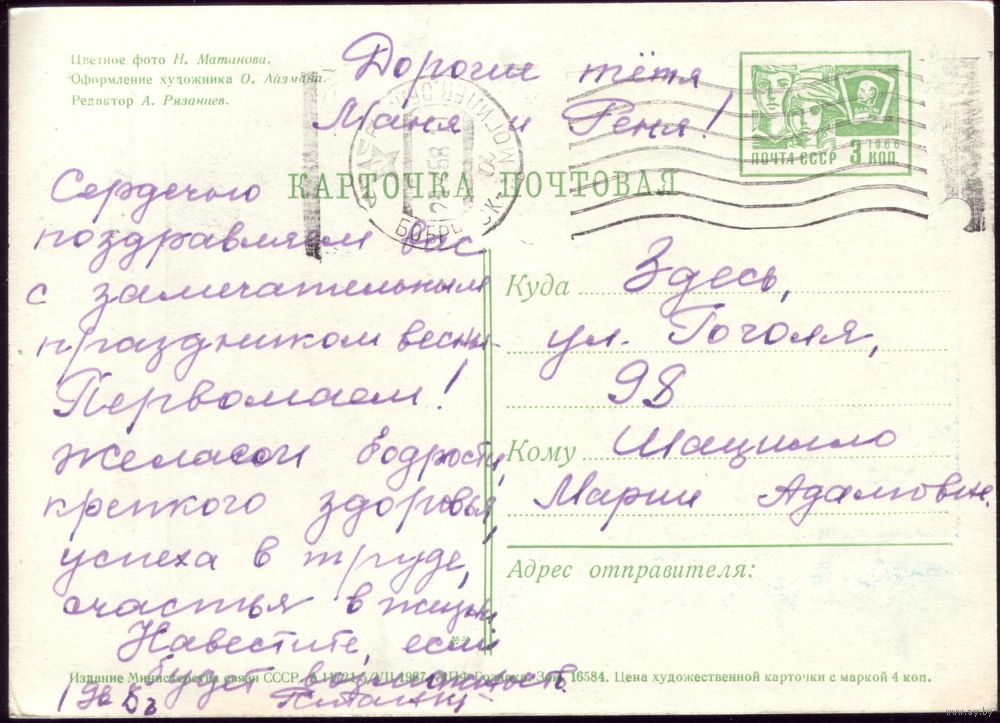 Цветное фото Н. Матанова.
Оформление художника О. Айзмана.
Редактор А. Рязанцев.
Дорогие тётя
Маня и Реня!
ВЛКСМ
1966
ПОЧТА СССР 3 КОП
КАРТОЧКА ПОЧТОВАЯ
Сердечно
поздравляем вас
с замечательным
праздником весны-
Первомаем!
Желаем бодрости,
крепкого здоровья,
успеха в труде,
счастья в жизни
Навестите, если
будет возможность
Куда Здесь,
ул. Гоголя,
98
Кому Шацилло
Марии Адамовне.
Адрес отправителя:
Издание Министерства связи СССР. 1967. Зак. 16584. Цена художественной карточки с маркой 4 коп.
www.ay.by